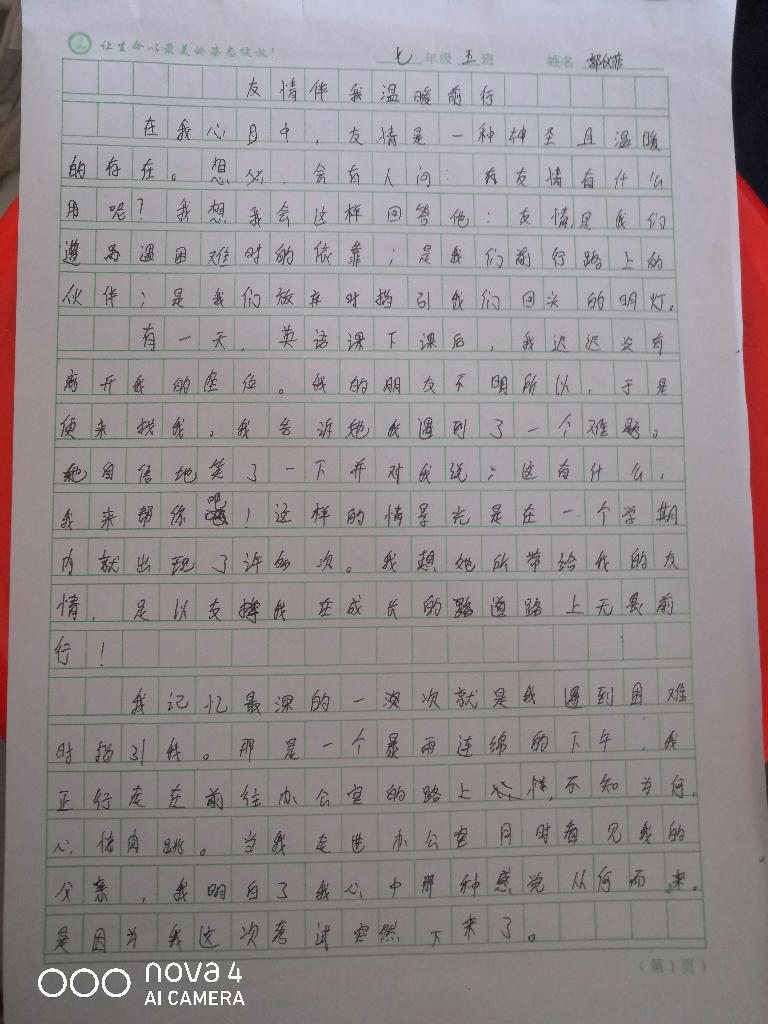 让生命以最美的姿态绽放!
七 年级 五 班 姓名
友情伴我温暖前行
在我心目中,友情是一种神圣且温暖
的存在。想必,会有人问:有友情有什么
用呢?我想我会这样回答他:友情是我们
遭遇困难时的依靠;是我们前行路上的
伙伴;是我们放弃时指引我们回头的明灯。
有一天,英语课下课后,我迟迟没有
离开我的座位。我的朋友不明所以,于是
便来找我。我告诉她我遇到了一个难题。
她自信地笑了一下并对我说:这有什么,
我来帮你吧!这样的情景光是在一个学期
内就出现了许多次。我想她所带给我的友
情,是以支撑我在成长的道路上无畏前
行!
我记忆最深的一次就是我遇到困难
时指引我。那是一个暴雨连绵的下午,我
正行走在前往办公室的路上,不知为何,
心怦肉跳。当我走进办公室门时看见我的
父亲,我明白了我心中那种感觉从何而来。
是因为我这次考试突然下来了。
(第1页)
nova 4
AI CAMERA